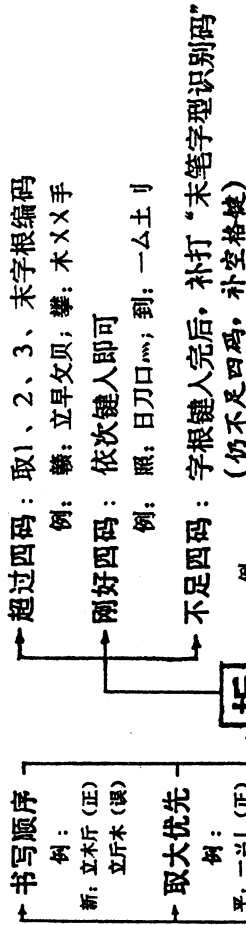 书写顺序
例：
新：立木斤（正）
立斤木（误）
取大优先
例：
超过四码：取1、2、3、末字根编码
例：赣：立早夂贝；攀：木乂乂手
刚好四码：依次键人即可
例：照：日刀口灬；到：一厶土刂
不足四码：字根键人完后，补打“末笔字型识别码”
（仍不足四码，补空格键）